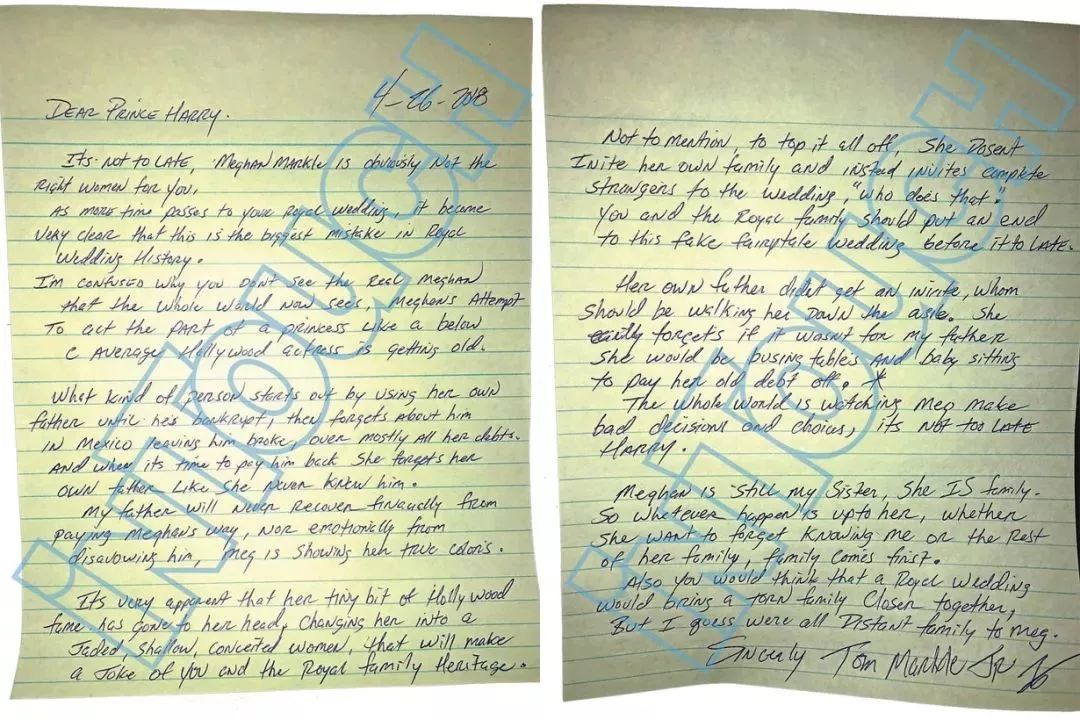 4-26-2018
DEAR PRINCE HARRY.
Its Not to LATE, Meghan Markle is obviously Not the
right women for you,
As more time passes to your Royal Wedding, it became
very clear that this is the biggest mistake in Royal
Wedding History.
I'm confused why you don't see the Real Meghan
that the whole world Now sees, Meghan's Attempt
To act the part of a princess Like a below
C Average Hollywood actress is getting old.
What kind of person starts out by using her own
father until he's bankrupt, then forgets about him
IN Mexico leaving him broke, over mostly all her debts.
AND when its time to pay him back she forgets her
own father Like she Never Knew him.
My father will Never recover financially from
paying Meghan's way, NOR emotionally from
disavowing him, Meg is showing her true colors.
It's very apparent that her tiny bit of Hollywood
fame has gone to her head, changing her into a
Jaded, shallow, conceited women, that will make
a Joke of you and the Royal family Heritage.
Not to mention, to top it all off, She Dosent
Inivite her own family and instead invites complete
strangers to the wedding, "who does that."
You and the Royal family should put an end
to this fake fairytale wedding before it to LATE.
Her own father didn't get an invite, whom
should be walking her Down the asle. She
forgets if it wasn't for my father
she would be busing tables AND baby sitting
to pay her old debt off. *
The whole world is watching Meg make
bad decisions and choices, its NOT too LATE
HARRY.
Meghan is still my Sister, She IS family.
So whatever happen is upto her, whether
she want to forget Knowing me or the Rest
of her family, family comes first.
Also you would think that a Royal Wedding
would bring a torn family closer together,
But I guess were all Distant family to Meg.
Sincerly Tom Markle Jr
INTOUCH
INTOUCH